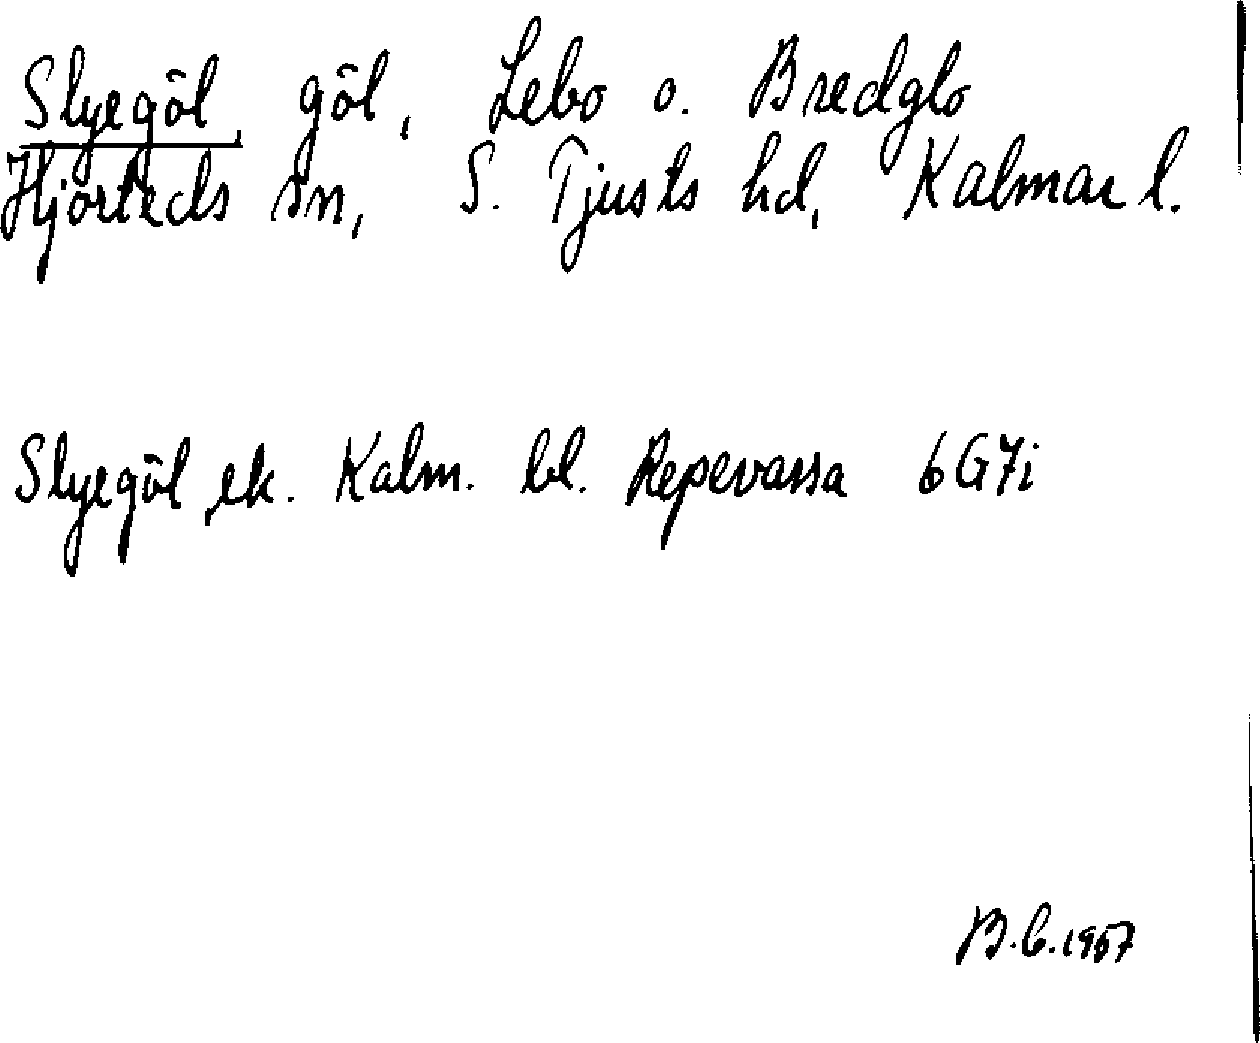 Slyegöl, göl, Lebo o. Bredglo
Hjorteds sn, S. Tjusts hd, Kalmar l.
Slyegöl, ek. Kalm. bl. Repevassa 6G7i